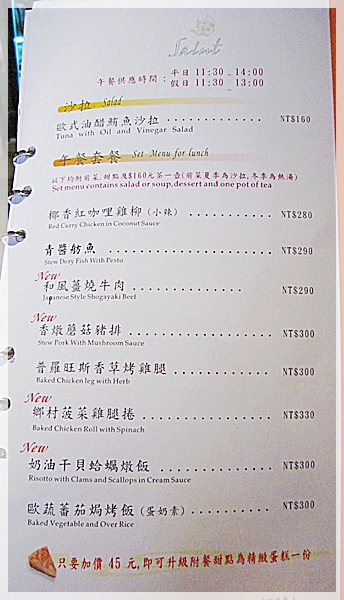 Salut
午餐供應時間： 平日 11:30 - 14:00
假日 11:30 - 13:00
沙拉 Salad
歐式油醋鮪魚沙拉 .............. NT$160
Tuna with Oil and Vinegar Salad
午餐套餐 Set Menu for lunch
以下均附前菜,甜點及$160元茶一壺(前菜夏季為沙拉,冬季為熱湯)
Set menu contains salad or soup,dessert and one pot of tea
椰香紅咖哩雞柳 (小辣) .............. NT$280
Red Curry Chicken in Coconut Sauce
青醬魴魚 .............. NT$290
Stew Dory Fish With Pesto
New
和風薑燒牛肉 .............. NT$290
Japanese Style Shogayaki Beef
New
香燉蘑菇豬排 .............. NT$300
Stew Pork With Mushroom Sauce
普羅旺斯香草烤雞腿 .............. NT$300
Baked Chicken leg with Herb
New
鄉村菠菜雞腿捲 .............. NT$330
Baked Chicken Roll with Spinach
New
奶油干貝蛤蠣燉飯 .............. NT$300
Risotto with Clams and Scallops in Cream Sauce
歐蔬蕃茄焗烤飯 (蛋奶素) .............. NT$300
Baked Vegetable and Over Rice
只要加價 45 元,即可升級附餐甜點為精緻蛋糕一份